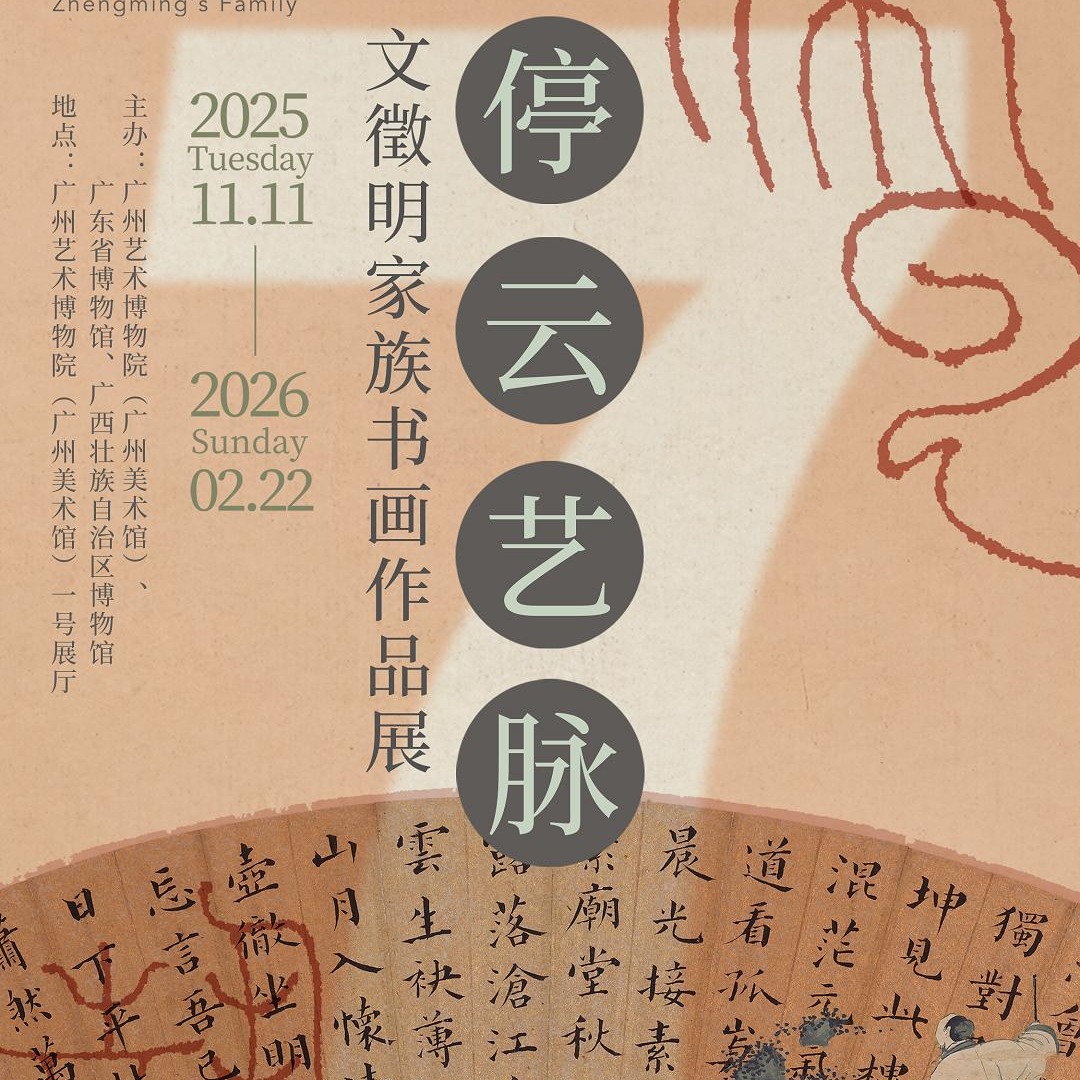 Zhengming's Family
停云艺脉
文徵明家族书画作品展
2025
Tuesday
11.11
2026
Sunday
02.22
主办：广州艺术博物院（广州美术馆）、
广东省博物馆、广西壮族自治区博物馆
地点：广州艺术博物院（广州美术馆）一号展厅
獨對
坤見此
混茫元氣
道看孤
晨光接素
廟堂秋
露落滄江
雲生袂薄
山月入懷
壺徹坐明
忘言吾已
日下平
蕭然萬